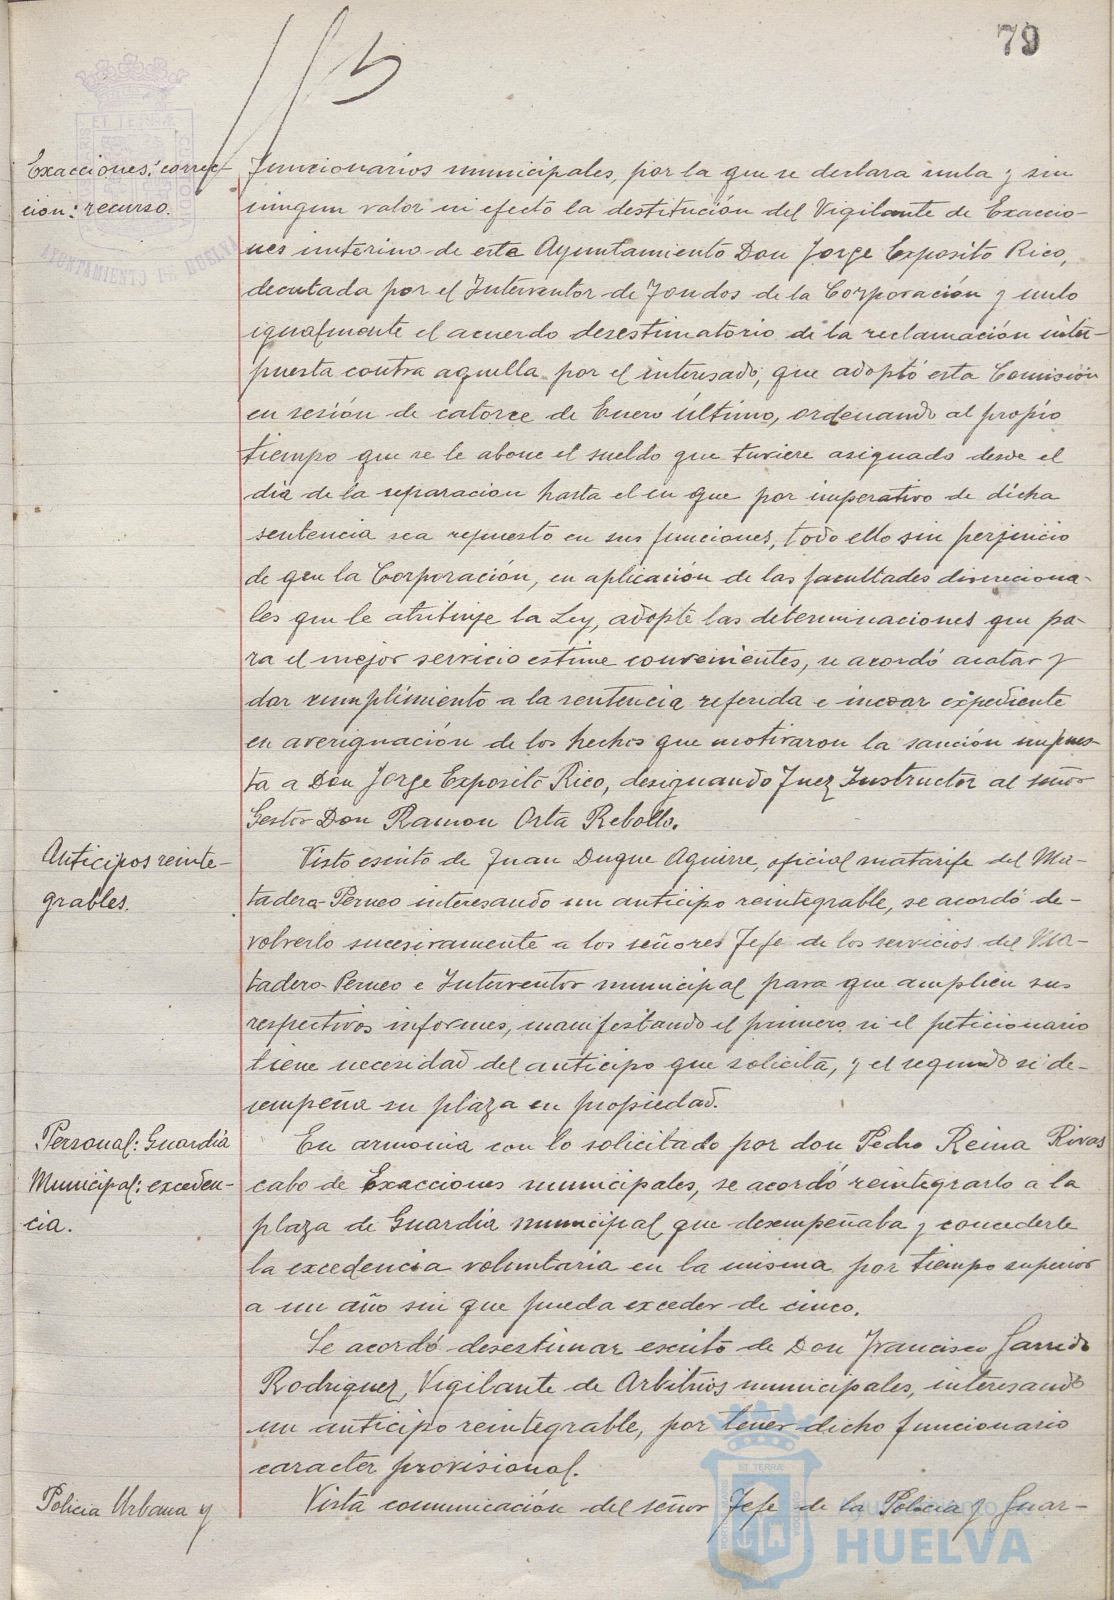 79
Exacciones: correc-
ción: recurso.
funcionarios municipales, por la que se declara nula y sin
ningun valor ni efecto la destitución del Vigilante de Exaccio-
nes interino de este Ayuntamiento Don Jorge Exposito Rico,
decretada por el Interventor de Fondos de la Corporación y nulo
igualmente el acuerdo desestimatorio de la reclamación inter-
puesta contra aquella por el interesado, que adoptó esta Comisión
en sesión de catorce de Enero último, ordenando al propio
tiempo que se le abone el sueldo que tuviere asignado desde el
dia de la separacion hasta el en que por imperativo de dicha
sentencia sea repuesto en sus funciones, todo ello sin perjuicio
de que la Corporación, en aplicación de las facultades direciona-
les que le atribuye la Ley, adopte las determinaciones que pa-
ra el mejor servicio estime convenientes, se acordó acatar y
dar cumplimiento a la sentencia referida e incoar expediente
en averiguación de los hechos que motivaron la sanción impues-
ta a Don Jorge Exposito Rico, designando Juez Instructor al señor
Gestor Don Ramon Orta Rebollo.
Anticipos reinte-
grables.
Visto escrito de Juan Duque Aguirre, oficial matarife del Ma-
tadero-Perneo interesando un anticipo reintegrable, se acordó de-
volverlo sucesivamente a los señores Jefe de los servicios del Ma-
tadero-Perneo e Interventor municipal para que amplien sus
respectivos informes, manifestando el primero si el peticionario
tiene necesidad del anticipo que solicita, y el segundo si de-
sempeña su plaza en propiedad.
Personal: Guardia
Municipal: exceden-
cia.
En armonia con lo solicitado por don Pedro Reina Rivas
cabo de Exacciones municipales, se acordó reintegrarlo a la
plaza de Guardia municipal que desempeñaba y concederle
la excedencia voluntaria en la misma por tiempo superior
a un año sin que pueda exceder de cinco.
Se acordó desestimar escrito de Don Francisco Garrido
Rodriguez, Vigilante de Arbitrios municipales, interesando
un anticipo reintegrable, por tener dicho funcionario
caracter provisional.
Policia Urbana y
Vista comunicación del señor Jefe de la Policia y Guar-
AYUNTAMIENTO DE HUELVA
Ayuntamiento de
HUELVA